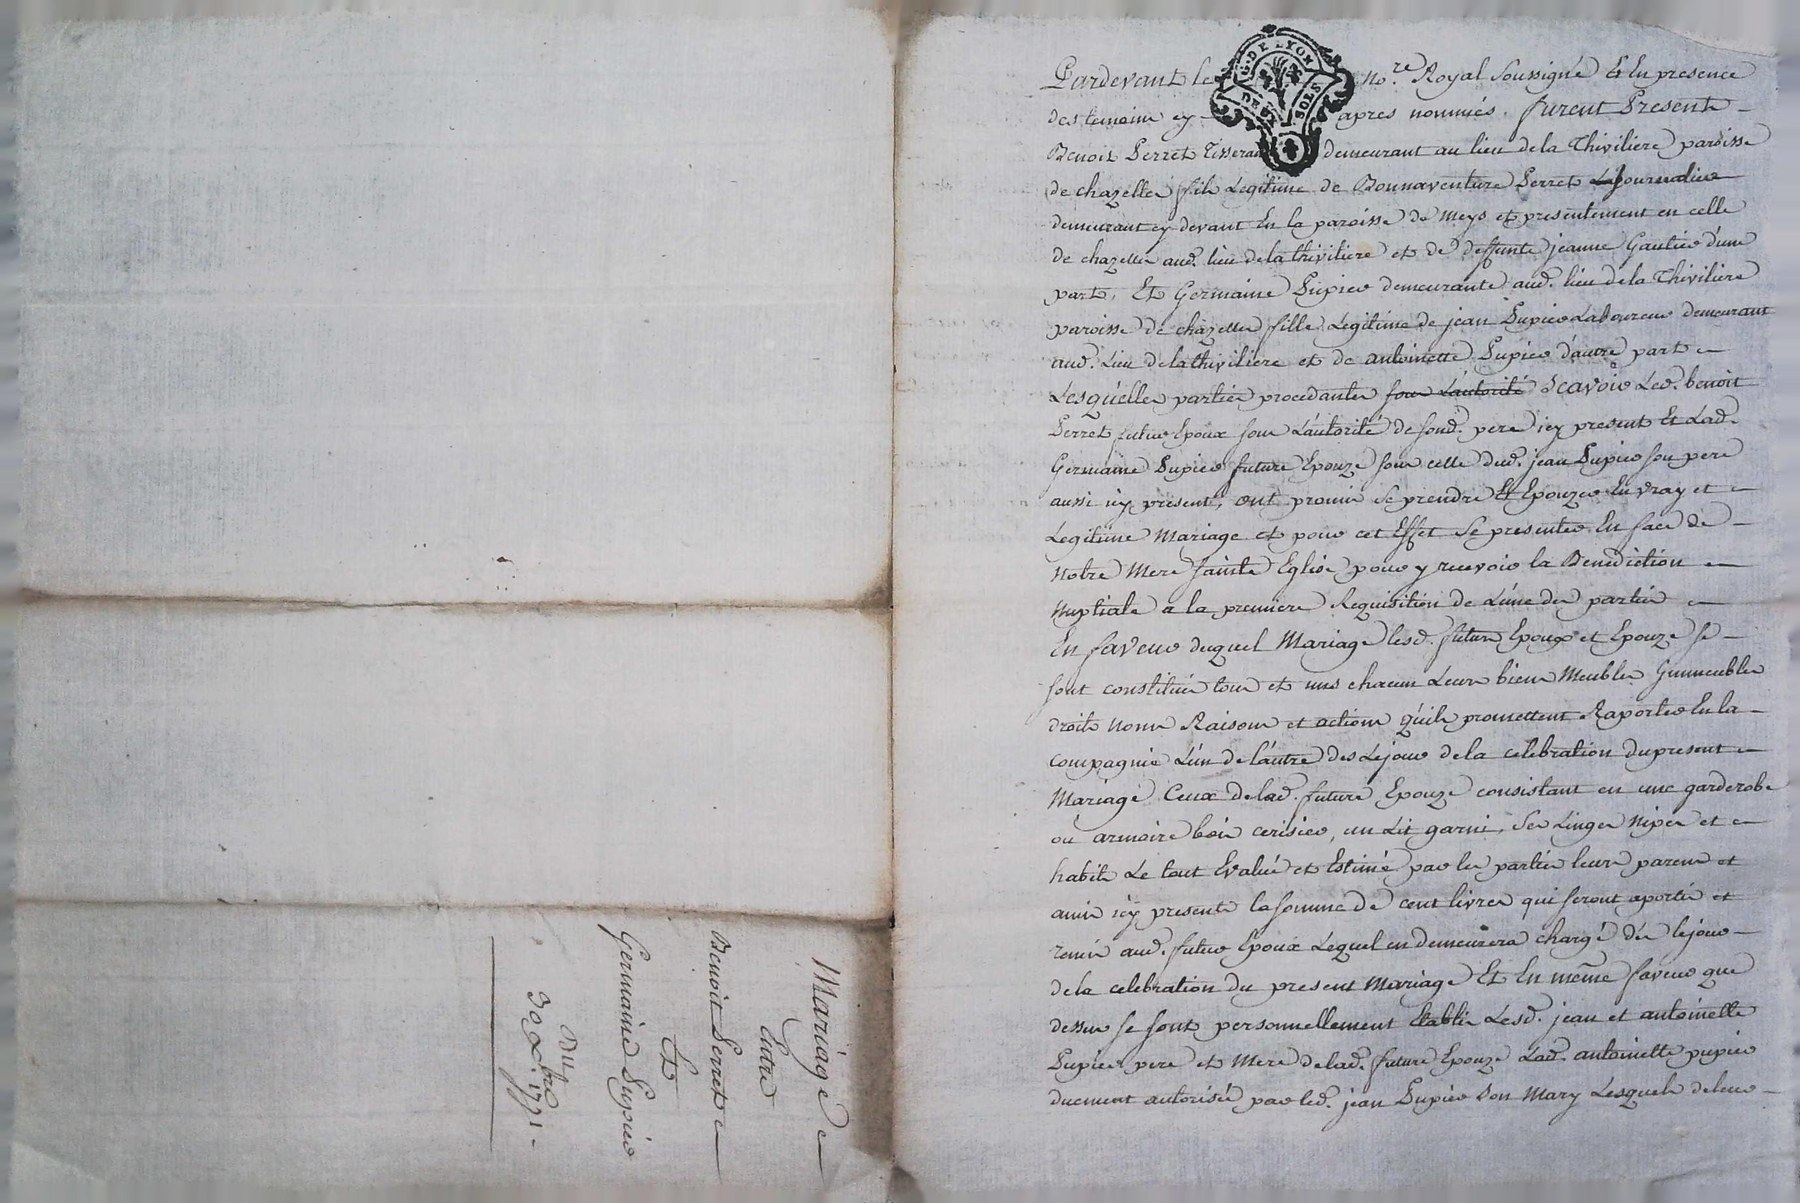 Mariage
Entre
Benoit Perret
Et
Germaine Pupier
Du
30 8.bre 1771
G. DE LYON
DEUX SOLS
Pardevant le No.re Royal Soussigné Et En presence
des temoins cy apres nommés. furent Presents
Benoit Perret Tisserand demeurant au lieu de la Thiviliere paroisse
de chazelles fils Legitime de Bonnaventure Perret journalier
demeurant cy devant En la paroisse de Meys et presentement en celle
de chazelles aud. lieu de la thiviliere et de deffunte jeanne Gautier d'une
part, Et Germaine Pupier demeurante aud. lieu de la Thiviliere
paroisse de chazelles fille Legitime de jean Pupier Laboureur demeurant
aud. Lieu de la thiviliere et de antoinette Pupier d'autre part
Lesquelles parties procedantes sous L'autorité Scavoir Led. benoit
Perret futur Epoux sous L'autorité de sond. pere icy present Et Lad.
Germaine Pupier future Epouze sous celle dud. jean Pupier son pere
aussi icy present, ont promis se prendre Et Epouzer En vray et
Legitime Mariage et pour cet Effet Se presenter En face de
Notre Mere Sainte Eglise pour y recevoir la Benediction
Nuptiale a la premiere Requisition de L'une des parties
En faveur duquel Mariage lesd. futurs Epoux et Epouze se
sont constitués tous et uns chacun Leurs biens Meubles Immeubles
droits Noms Raisons et actions qu'ils promettent Raporter En la
compagnie L'un de L'autre des Le jour de la celebration du present
Mariage Ceux de lad. future Epouze consistant en une garderobe
ou armoire bois cerisier, un Lit garni, Ses Linges Nipes et
habits Le tout Evalué et Estimé par les parties leurs parens et
amis icy presents la somme de cent livres qui seront aportés et
remis aud. futur Epoux Lequel en demeurera chargé dès le jour
de la celebration du present Mariage Et En même faveur que
dessus se sont personnellement établis Lesd. jean et antoinette
Pupier pere et Mere de lad. future Epouze Lad. antoinette pupier
duement autorisée par led. jean Pupier Son Mary Lesquels de leur